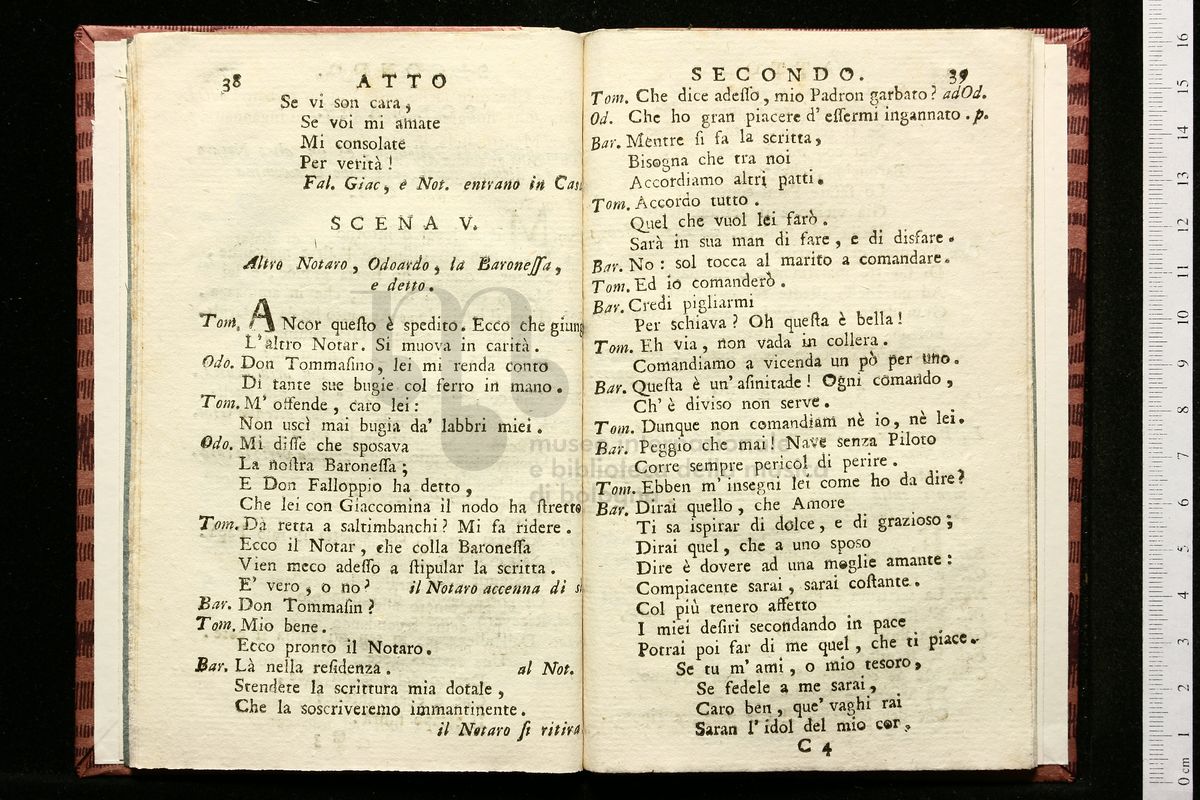 38 ATTO
Se vi son cara,
Se voi mi amate
Mi consolate
Per verità!
Fal. Giac, e Not. entrano in Cas
SCENA V.
Altro Notaro, Odoardo, la Baroneſſa,
e detto.
Tom. ANcor queſto è spedito. Ecco che giung
L'altro Notar. Si muova in carità.
Odo. Don Tommaſino, lei mi renda conto
Di tante sue bugie col ferro in mano.
Tom. M' offende, caro lei:
Non uscì mai bugia da' labbri miei.
Odo. Mi diſſe che sposava
La noſtra Baroneſſa;
E Don Falloppio ha detto,
Che lei con Giaccomina il nodo ha ſtretto
Tom. Da retta a saltimbanchi? Mi fa ridere.
Ecco il Notar, che colla Baroneſſa
Vien meco adeſſo a ſtipular la scritta.
E' vero, o no? il Notaro accenna di s
Bar. Don Tommaſin?
Tom. Mio bene.
Ecco pronto il Notaro.
Bar. Là nella reſidenza. al Not.
Stendete la scrittura mia dotale,
Che la soscriveremo immantinente.
il Notaro ſi ritira
SECONDO. 39
Tom. Che dice adeſſo, mio Padron garbato? adOd.
Od. Che ho gran piacere d' eſſermi ingannato. p.
Bar. Mentre ſi fa la scritta,
Bisogna che tra noi
Accordiamo altri patti.
Tom. Accordo tutto.
Quel che vuol lei farò.
Sarà in sua man di fare, e di disfare.
Bar. No: sol tocca al marito a comandare.
Tom. Ed io comanderò.
Bar. Credi pigliarmi
Per schiava? Oh queſta è bella!
Tom. Eh via, non vada in collera.
Comandiamo a vicenda un pò per uno.
Bar. Queſta è un' aſinitade! Ogni comando,
Ch' è diviso non serve.
Tom. Dunque non comandiam nè io, nè lei.
Bar. Peggio che mai! Nave senza Piloto
Corre sempre pericol di perire.
Tom. Ebben m' insegni lei come ho da dire?
Bar. Dirai quello, che Amore
Ti sa ispirar di dolce, e di grazioso;
Dirai quel, che a uno sposo
Dire è dovere ad una moglie amante:
Compiacente sarai, sarai coſtante.
Col più tenero affetto
I miei deſiri secondando in pace
Potrai poi far di me quel, che ti piace.
Se tu m' ami, o mio tesoro,
Se fedele a me sarai,
Caro ben, que' vaghi rai
Saran l' idol del mio cor.
C 4
museo internazionale
e biblioteca della musica
di bologna
0 cm 1 2 3 4 5 6 7 8 9 10 11 12 13 14 15 16